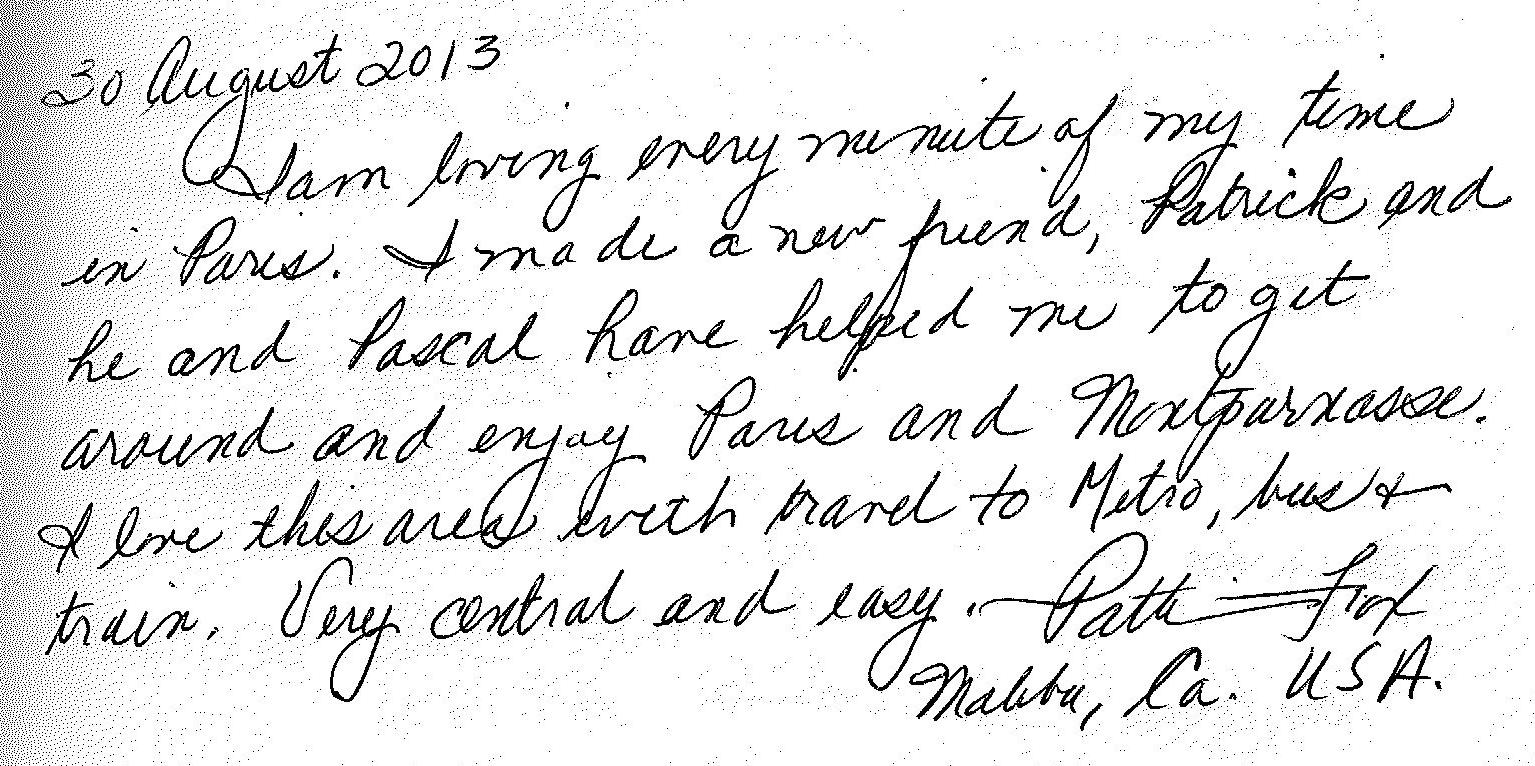 30 August 2013
I am loving every minute of my time
in Paris. I made a new friend, Patrick and
he and Pascal have helped me to get
around and enjoy Paris and Montparnasse.
I love this area with travel to Metro, bus &
train. Very central and easy. — Patti Fox
Malibu, Ca. USA.